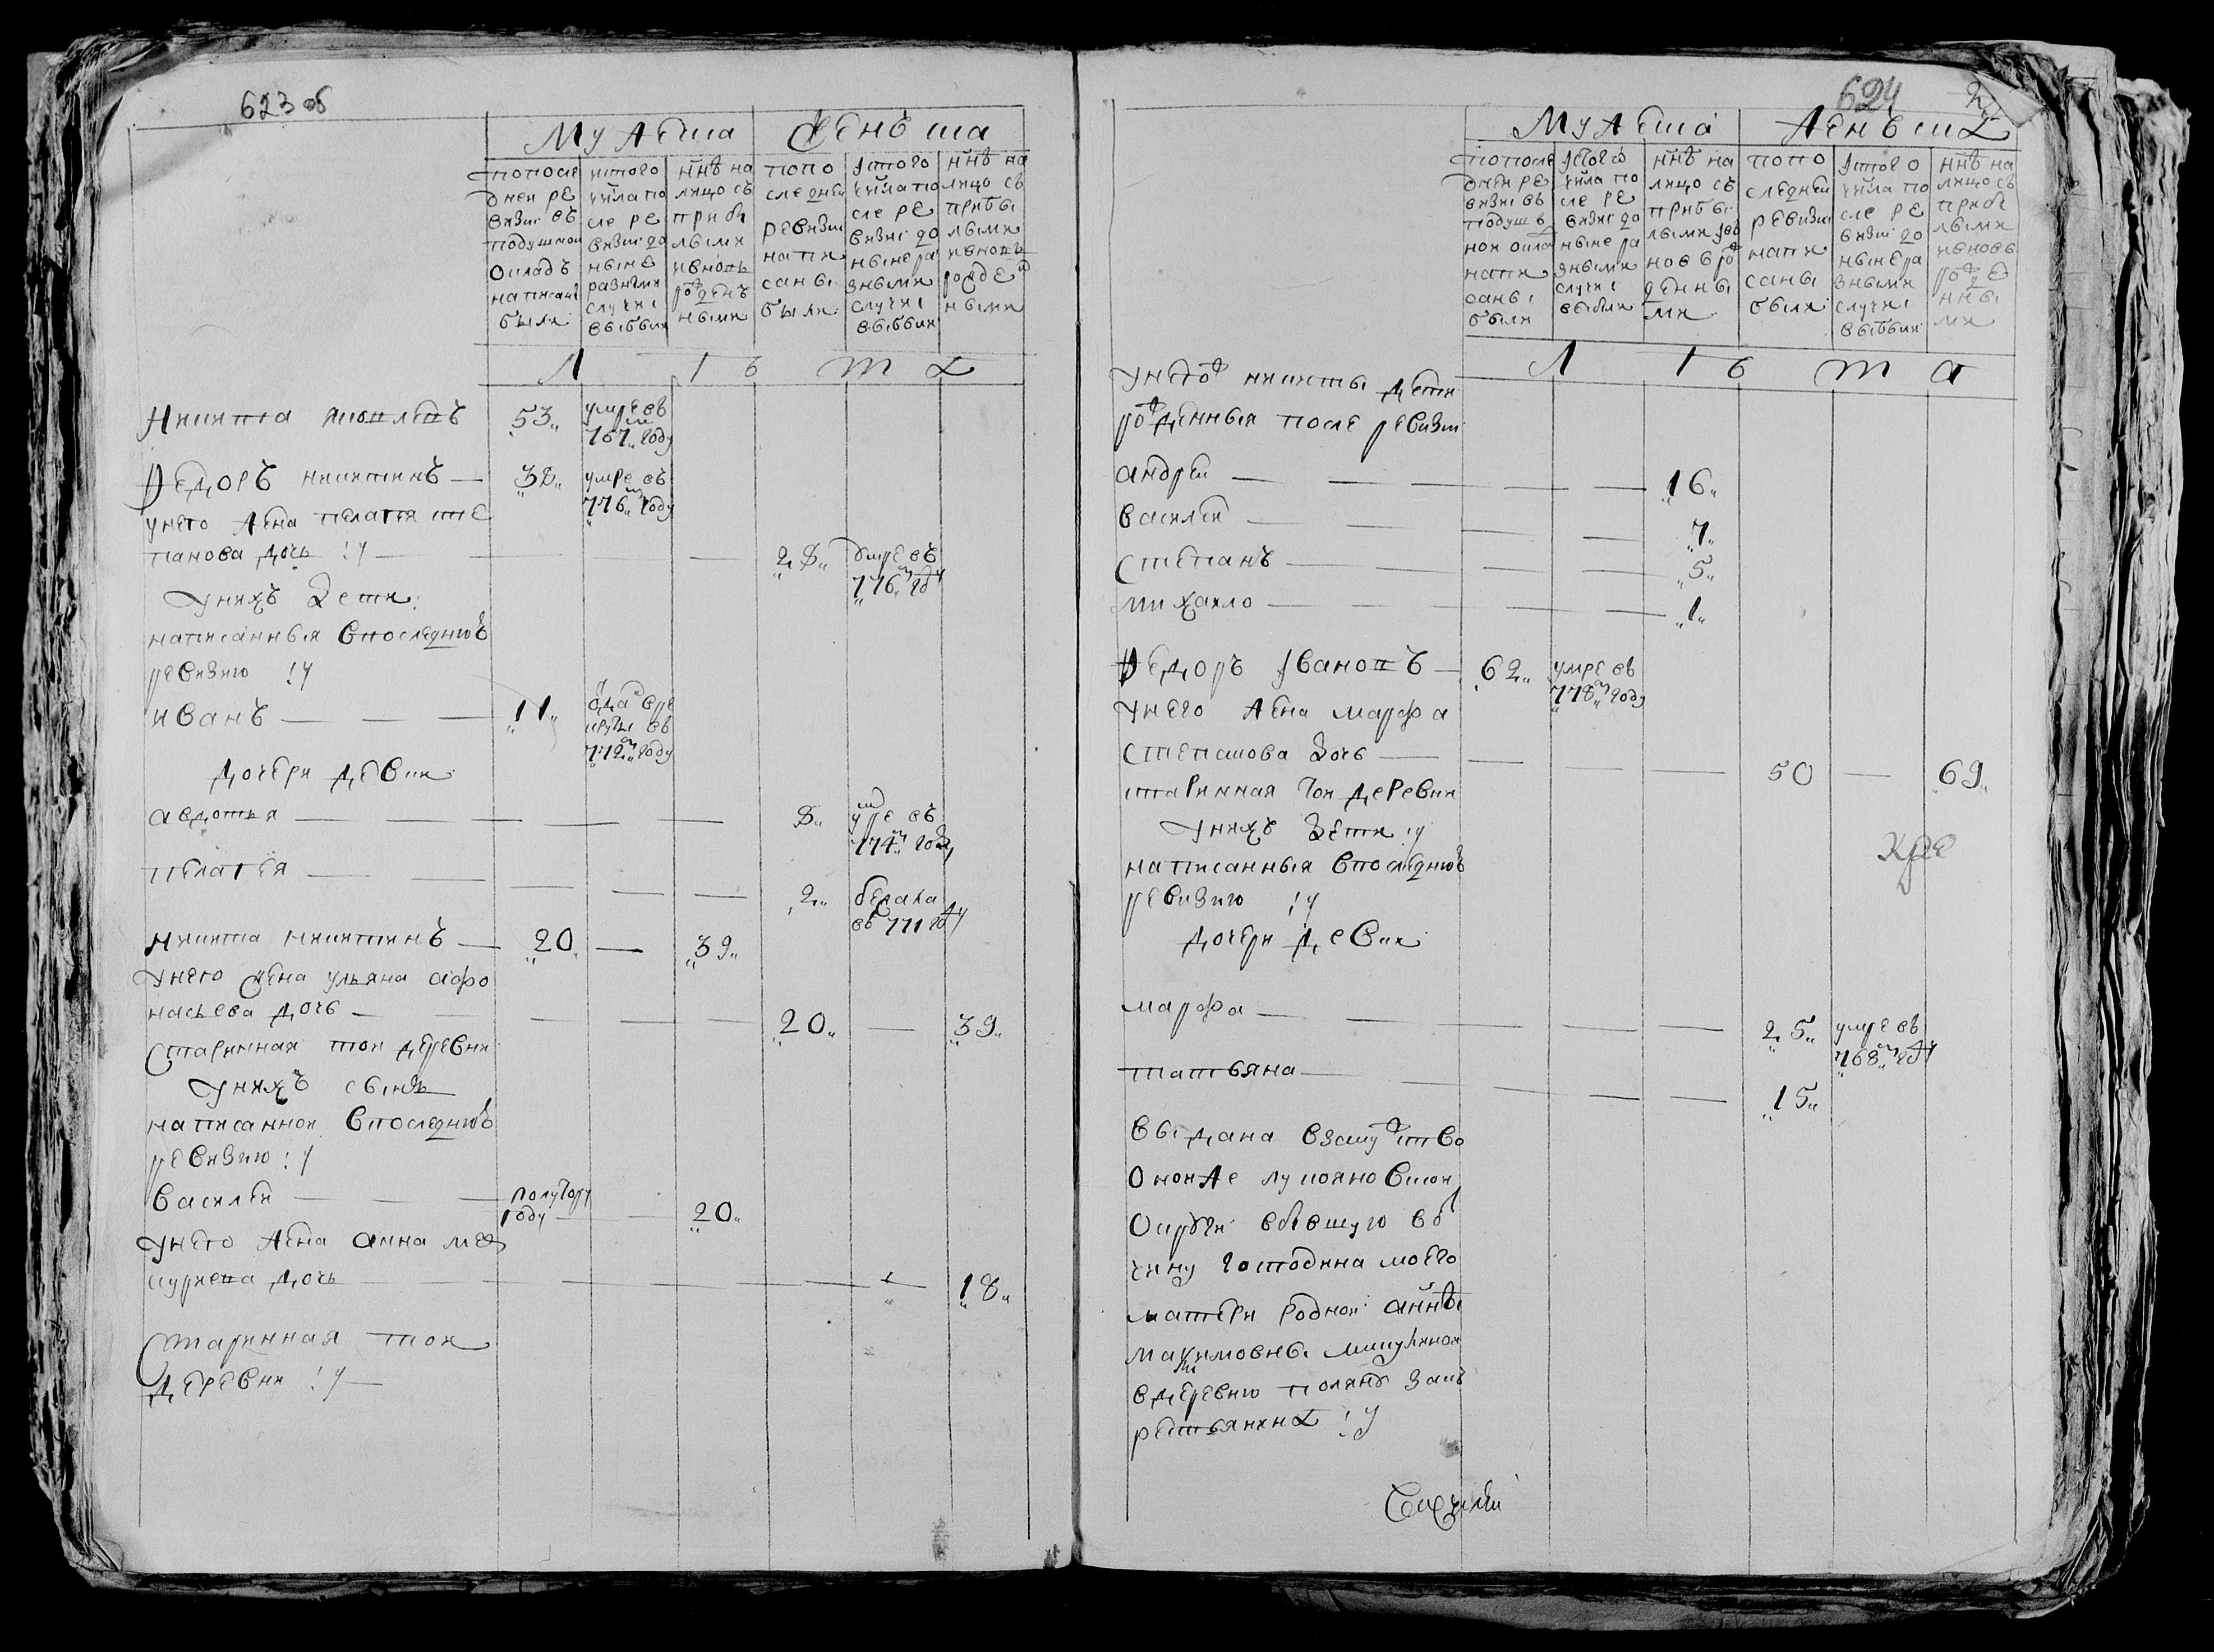 623 об
Мужеска
Женъска
по после
дней ре
визиі въ
подушной
окладъ
написаны
были
ис того
числа по
сле ре
визиі до
ныне
разными
случаі
выбыли
ннѣ на
лицо съ
прибы
лыми
и вновь
рожденъ
ными
по по
следней
ревизии
напи
саны
были
ис того
числа по
сле ре
визиі до
ныне ра
зными
случаі
выбыли
ннѣ на
лицо съ
прибы
лыми
и вновь
рожде
ными
Л Ѣ т а
Никита Яковлевъ 53 умре въ
767м году
Федоръ Никитинъ 32 умре въ
776м году
у него жена Пелагея Сте
панова дочь 28 умре въ
776м году
у нихъ дети
написанныя в последнюю
ревизию
Иванъ 11 отдан в ре
круты въ
772м году
дочери девки
Авдотья 8 умре въ
774м году
Пелагея 2 бежала
въ 771 году
Никита Никитинъ 20 39
у него жена Ульяна Афо
насьева дочь 20 39
старинная той деревни
у нихъ сынъ
написанной в последнюю
ревизию
Василей полутору
году 20
у него жена Анна Ме
дочь 18
старинная той
деревни
624
Мужеска
Женъска
по после
дней ре
визиі въ
подуш
ной окла
напи
саны
были
ис того
числа по
сле ре
визиі до
ныне ра
зными
случаі
выбыли
ннѣ на
лицо съ
прибы
лыми
нов в ро
жденны
ми
по по
следней
ревизии
напи
саны
были
ис того
числа по
сле ре
визиі до
ныне ра
зными
случаі
выбыли
ннѣ на
лицо съ
прибы
лыми
и вновь
рожде
нны
ми
Л Ѣ т а
у него ж Никиты дети
рожденныя после ревизии
Андрей 16
Василей 7
Степанъ 5
Михайло 1
Федоръ Ивановъ 62 умре въ
778м году
у него жена Марфа
Степанова дочь 50 69
старинная той деревни
у нихъ дети
написанныя в последнюю
ревизию
дочери девки
Марфа 25 умре въ
768м году
Татьяна 15
выдана в замужство
оной же Лукояновской
округи в бывшую вот
чину господина моего
матери родной Анны
Максимовны Микулиной
в деревню Поляны за кр
рестьянина